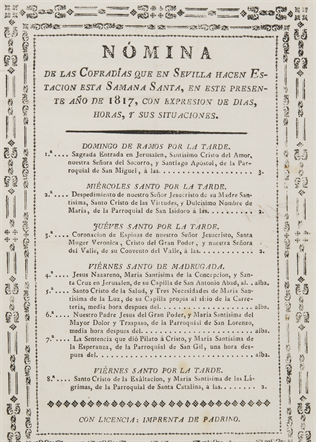 NÓMINA
DE LAS COFRADÍAS QUE EN SEVILLA HACEN ES-
TACION ESTA SAMANA SANTA, EN ESTE PRESEN-
TE AÑO DE 1817, CON EXPRESION DE DIAS,
HORAS, Y SUS SITUACIONES.
DOMINGO DE RAMOS POR LA TARDE.
1.ª.... Sagrada Entrada en Jerusalen, Santísimo Cristo del Amor,
nuestra Señora del Socorro, y Santiago Apóstol, de la Par-
roquial de San Miguel, á las... 3.
MIÉRCOLES SANTO POR LA TARDE.
2.ª.... Despedimiento de nuestro Señor Jesucristo de su Madre San-
tísima, Santo Cristo de las Virtudes, y Dulcísimo Nombre de
María, de la Parroquial de San Isidoro á las... 2.
JUÉVES SANTO POR LA TARDE.
3.ª.... Coronacion de Espinas de nuestro Señor Jesucristo, Santa
Muger Veronica, Cristo del Gran Poder, y nuestra Señora
del Valle, de su Convento del Valle, á las... 2.
VIÉRNES SANTO DE MADRUGADA.
4.ª.... Jesus Nazareno, María Santísima de la Concepcion, y San-
ta Cruz en Jerusalen, de su Capilla de San Antonio Abad, al.. alba.
5.ª.... Santo Cristo de la Salud, y Tres Necesidades de María San-
tísima de la Luz, de su Capilla propia al sitio de la Carre-
tería, media hora despues del... alba.
6.ª.... Nuestro Padre Jesus del Gran Poder, y María Santísima del
Mayor Dolor y Traspaso, de la Parroquial de San Lorenzo,
media hora despues del... alba.
7.ª.... La Sentencia que dió Pilato á Cristo, y María Santísima de
la Esperanza, de la Parroquial de San Gil, una hora des-
pues del... alba.
VIÉRNES SANTO POR LA TARDE.
8.ª.... Santo Cristo de la Exâltacion, y María Santísima de las Lá-
grimas, de la Parroquial de Santa Catalina, á las... 2.
CON LICENCIA: IMPRENTA DE PADRINO.